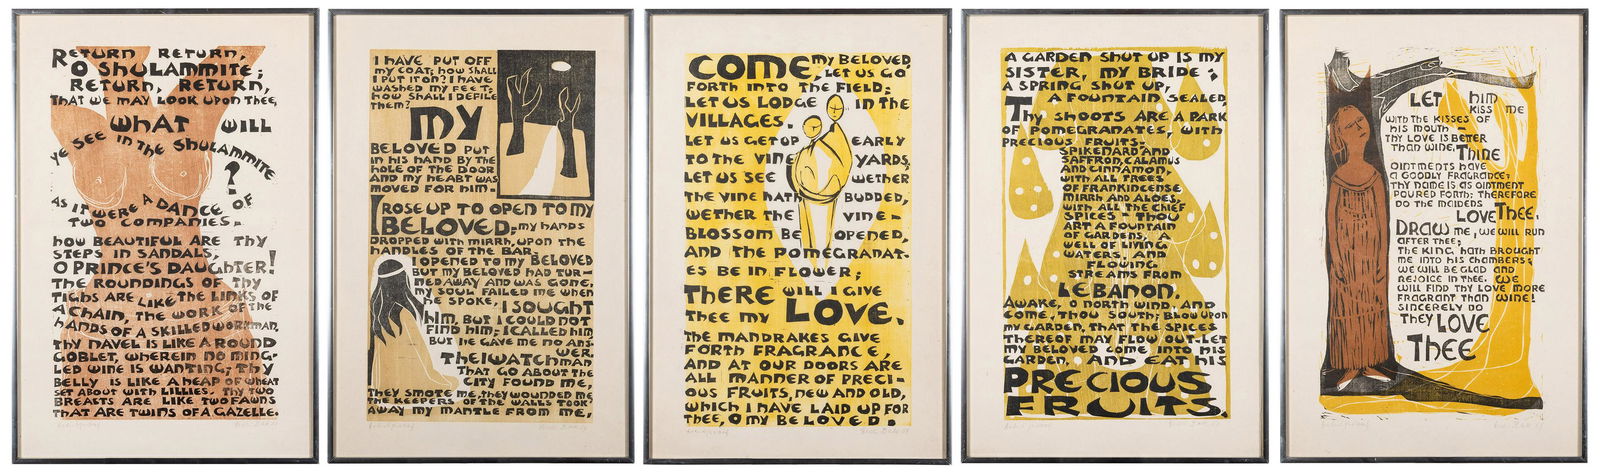 RETURN RETURN,
O SHULAMMITE;
RETURN, RETURN,
THAT WE MAY LOOK UPON THEE,
WHAT WILL
YE SEE IN THE SHULAMMITE
?
AS IT WERE A DANCE OF
TWO COMPANIES-
HOW BEAUTIFUL ARE THY
STEPS IN SANDALS,
O PRINCE'S DAUGHTER!
THE ROUNDINGS OF THY
TIGHS ARE LIKE THE LINKS OF
A CHAIN, THE WORK OF THE
HANDS OF A SKILLED WORKMAN,
THY NAVEL IS LIKE A ROUND
GOBLET, WHEREIN NO MING-
LED WINE IS WANTING; THY
BELLY IS LIKE A HEAP OF WHEAT
SET ABOUT WITH LILLIES. THY TWO
BREASTS ARE LIKE TWO FAWNS
THAT ARE TWINS OF A GAZELLE.
I HAVE PUT OFF
MY COAT; HOW SHALL
I PUT IT ON? I HAVE
WASHED MY FEET;
HOW SHALL I DEFILE
THEM?
MY
BELOVED PUT
IN HIS HAND BY THE
HOLE OF THE DOOR
AND MY HEART WAS
MOVED FOR HIM-
I ROSE UP TO OPEN TO MY
BELOVED; MY HANDS
DROPPED WITH MIRRH, UPON THE
HANDLES OF THE BAR.
I OPENED TO MY BELOVED
BUT MY BELOVED HAD TUR-
NED AWAY AND WAS GONE.
MY SOUL FAILED ME WHEN
HE SPOKE; I SOUGHT
HIM, BUT I COULD NOT
FIND HIM; I CALLED HIM
BUT HE GAVE ME NO ANS-
WER.
THE WATCHMAN
THAT GO ABOUT THE
CITY FOUND ME,
THEY SMOTE ME, THEY WOUNDED ME
THE KEEPERS OF THE WALLS TOOK
AWAY MY MANTLE FROM ME,
COME, MY BELOVED,
LET US GO
FORTH INTO THE FIELD;
LET US LODGE IN THE
VILLAGES.
LET US GET UP EARLY
TO THE VINE YARDS,
LET US SEE WETHER
THE VINE HATH BUDDED,
WETHER THE VINE-
BLOSSOM BE OPENED,
AND THE POMEGRANAT-
ES BE IN FLOWER;
THERE WILL I GIVE
THEE MY LOVE.
THE MANDRAKES GIVE
FORTH FRAGRANCE,
AND AT OUR DOORS ARE
ALL MANNER OF PRECI-
OUS FRUITS, NEW AND OLD,
WHICH I HAVE LAID UP FOR
THEE, O MY BELOVED.
A GARDEN SHUT UP IS MY
SISTER, MY BRIDE;
A SPRING SHUT UP,
A FOUNTAIN SEALED,
THY SHOOTS ARE A PARK
OF POMEGRANATES, WITH
PRECIOUS FRUITS-
SPIKENARD AND
SAFFRON, CALAMUS
AND CINNAMON,
WITH ALL TREES
OF FRANKINCENSE
MIRRH AND ALOES,
WITH ALL THE CHIEF
SPICES - THOU
ART A FOUNTAIN
OF GARDENS, A
WELL OF LIVING
WATERS, AND
FLOWING
STREAMS FROM
LEBANON.
AWAKE, O NORTH WIND, AND
COME, THOU SOUTH; BLOW UPON
MY GARDEN, THAT THE SPICES
THEREOF MAY FLOW OUT-LET
MY BELOVED COME INTO HIS
GARDEN, AND EAT HIS
PRECIOUS
FRUITS.
LET HIM
KISS ME
WITH THE KISSES OF
HIS MOUTH -
THY LOVE IS BETTER
THAN WINE, THINE
OINTMENTS HAVE
A GOODLY FRAGRANCE;
THY NAME IS AS OINTMENT
POURED FORTH; THEREFORE
DO THE MAIDENS
LOVE THEE.
DRAW ME, WE WILL RUN
AFTER THEE;
THE KING HATH BROUGHT
ME INTO HIS CHAMBERS;
WE WILL BE GLAD AND
REJOICE IN THEE. WE
WILL FIND THY LOVE MORE
FRAGRANT THAN WINE!
SINCERELY DO
THEY LOVE
THEE